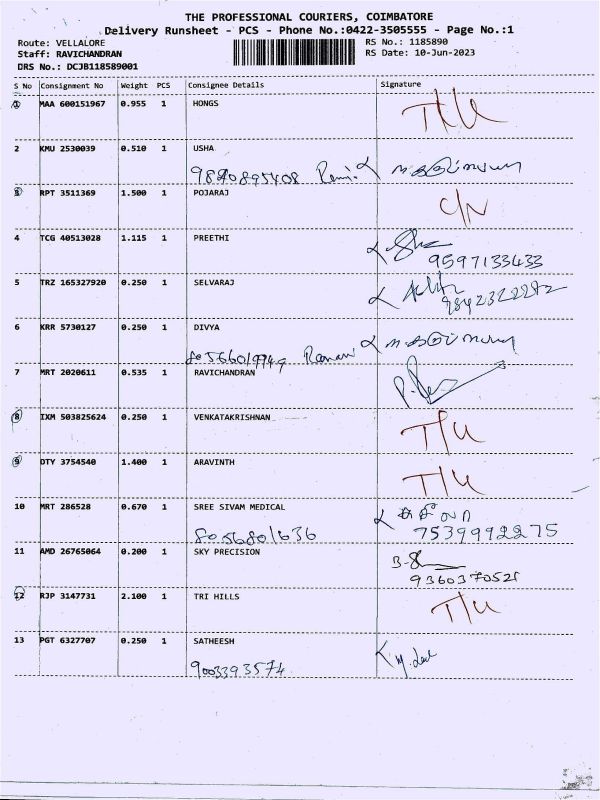 THE PROFESSIONAL COURIERS, COIMBATORE
Delivery Runsheet - PCS - Phone No.:0422-3505555 - Page No.:1
Route: VELLALORE
Staff: RAVICHANDRAN
DRS No.: DCJB118589001
RS No.: 1185890
RS Date: 10-Jun-2023
S No Consignment No Weight PCS Consignee Details Signature
1 MAA 600151967 0.955 1 HONGS T/U
2 KMU 2530039 0.510 1 USHA
9840895408
3 RPT 3511369 1.500 1 POJARAJ C/N
4 TCG 40513028 1.115 1 PREETHI
9597133433
5 TRZ 165327920 0.250 1 SELVARAJ
9842322272
6 KRR 5730127 0.250 1 DIVYA
80566019949
7 MRT 2020611 0.535 1 RAVICHANDRAN
8 IXM 503825624 0.250 1 VENKATAKRISHNAN T/U
9 DTY 3754540 1.400 1 ARAVINTH T/U
10 MRT 286528 0.670 1 SREE SIVAM MEDICAL
8056801636 7539992275
11 AMD 26765064 0.200 1 SKY PRECISION
9360370521
12 RJP 3147731 2.100 1 TRI HILLS T/U
13 PGT 6327707 0.250 1 SATHEESH
9003393574